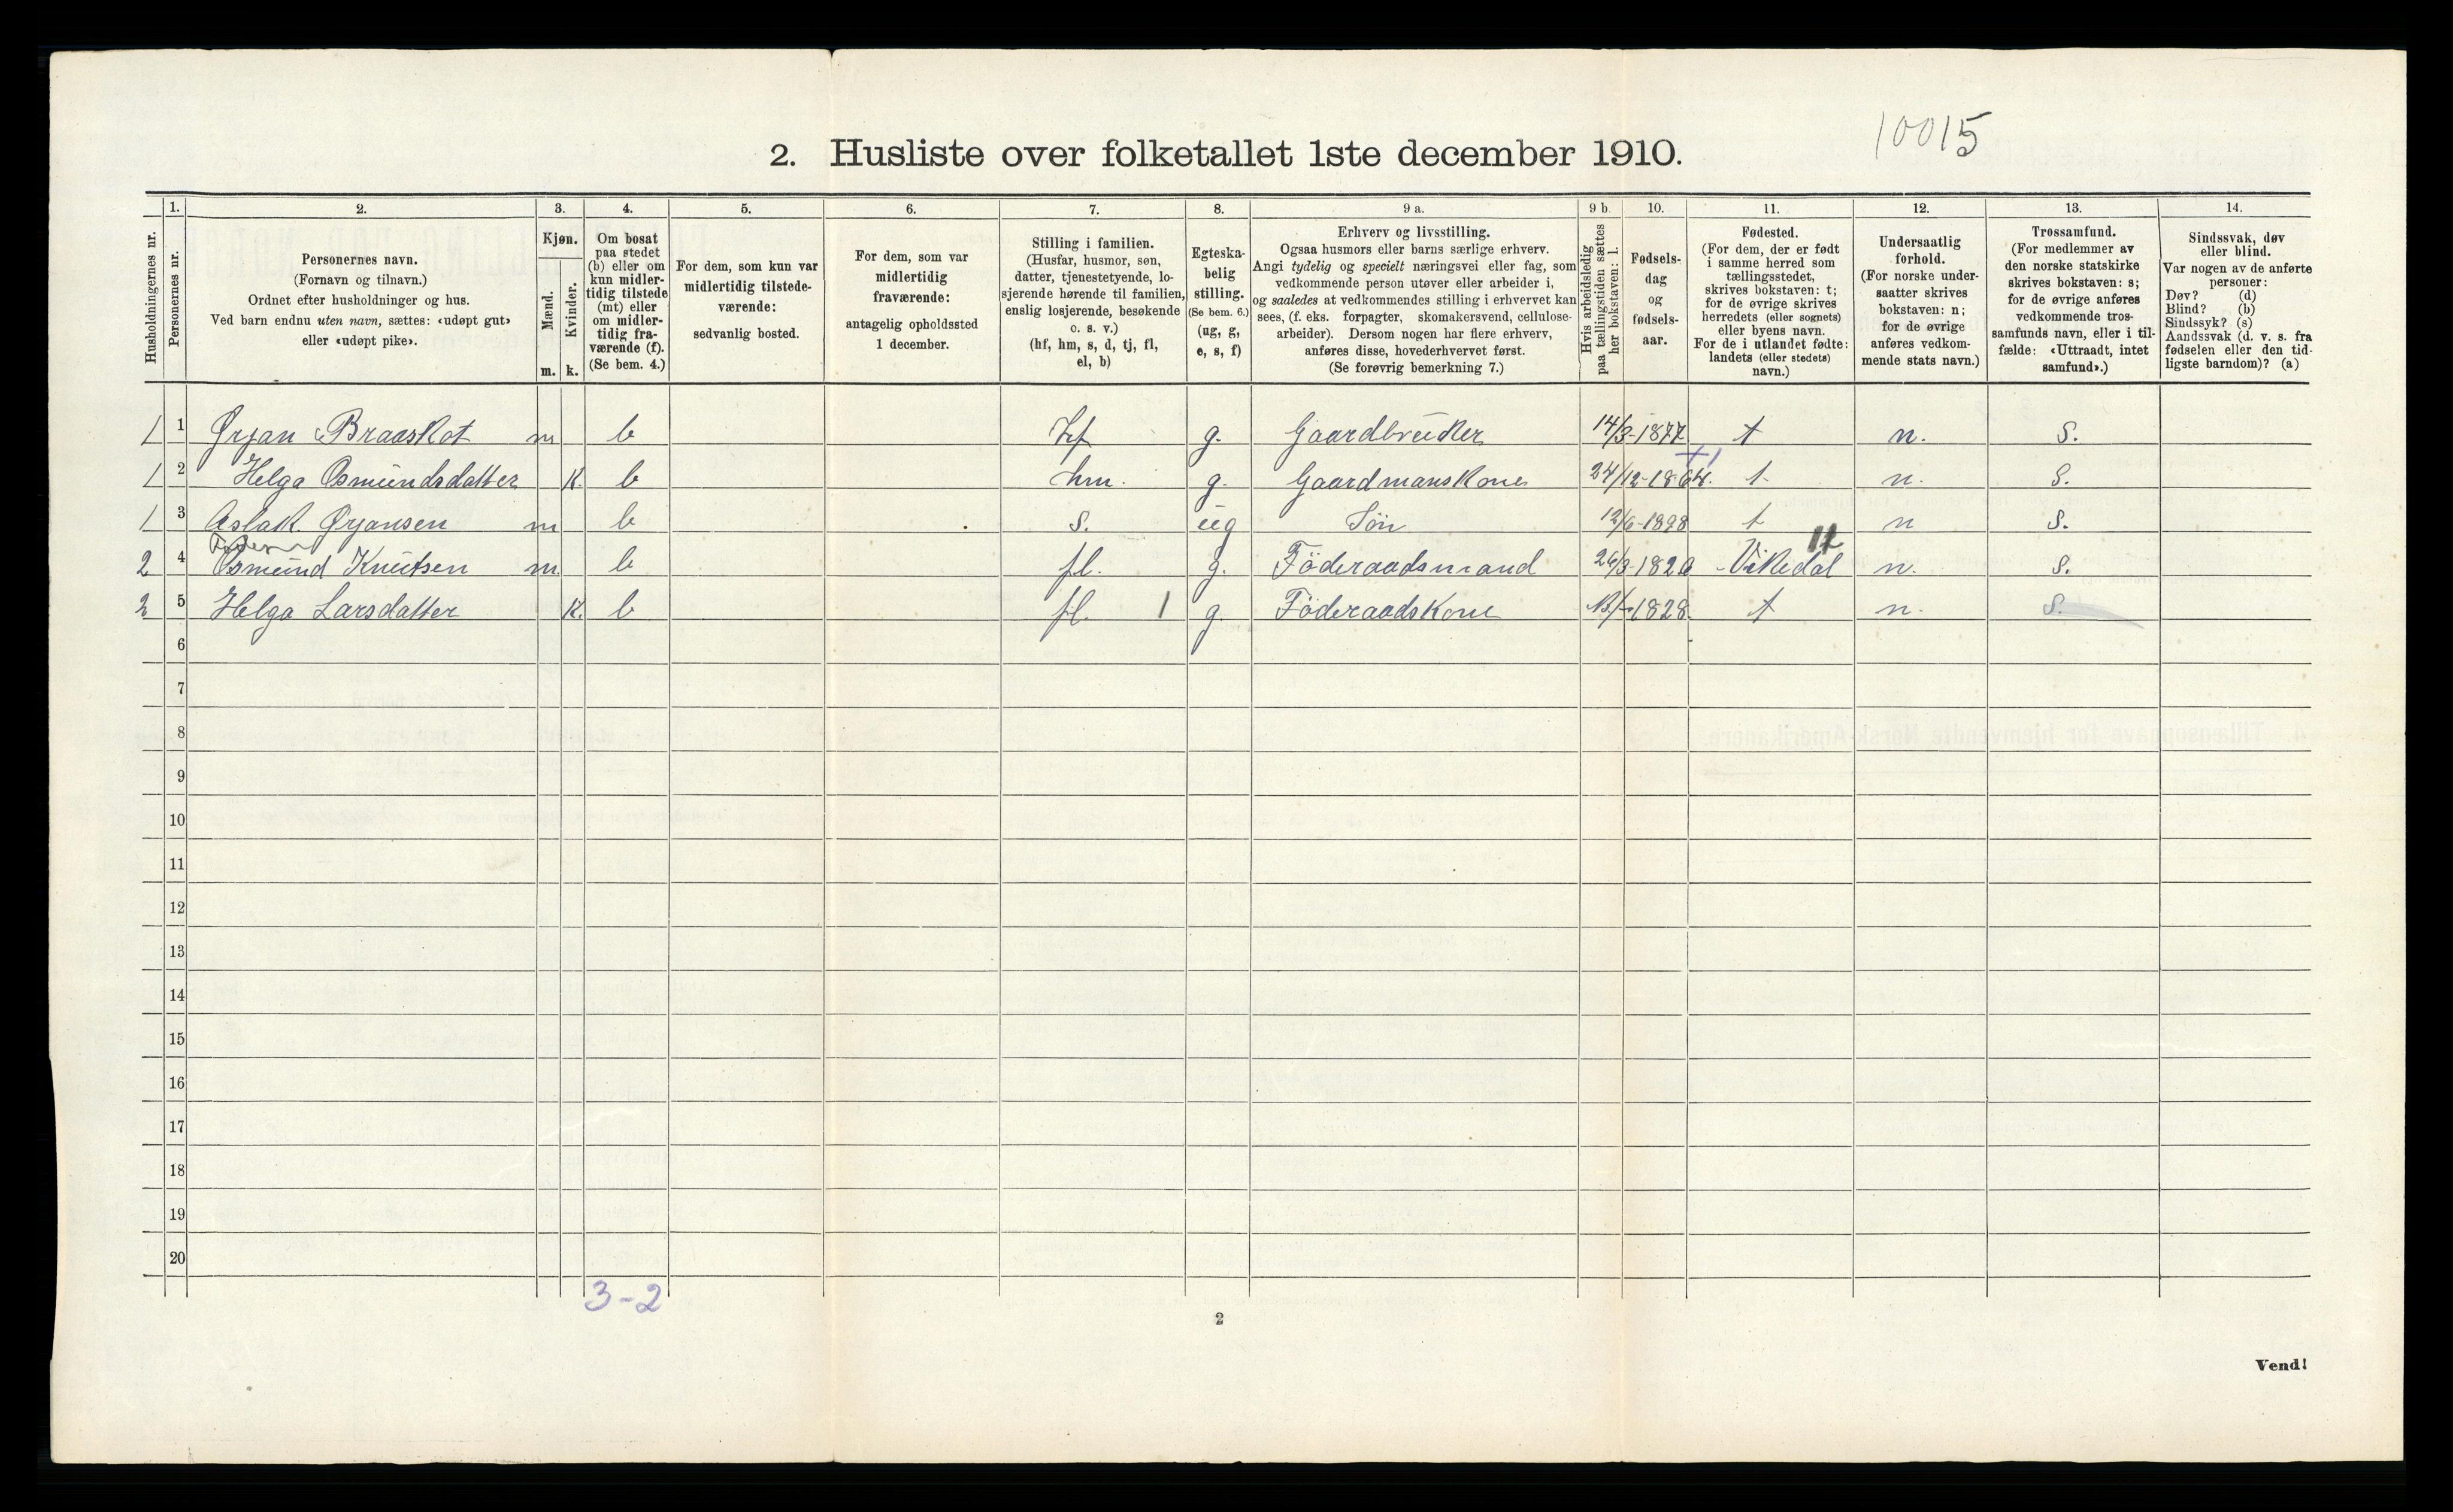 10015
2. Husliste over folketallet 1ste december 1910.
1. 2. 3. 4. 5. 6. 7. 8. 9 a. 9 b. 10. 11. 12. 13. 14.
Husholdningernes nr.
Personernes nr.
Personernes navn.
(Fornavn og tilnavn.)
Ordnet efter husholdninger og hus.
Ved barn endnu uten navn, sættes: «udøpt gut»
eller «udøpt pike».
Kjøn.
Mænd.
Kvinder.
m. k.
Om bosat
paa stedet
(b) eller om
kun midler-
tidig tilstede
(mt) eller
om midler-
tidig fra-
værende (f).
(Se bem. 4.)
For dem, som kun var
midlertidig tilstede-
værende:
sedvanlig bosted.
For dem, som var
midlertidig
fraværende:
antagelig opholdssted
1 december.
Stilling i familien.
(Husfar, husmor, søn,
datter, tjenestetyende, lo-
sjerende hørende til familien,
enslig losjerende, besøkende
o. s. v.)
(hf, hm, s, d, tj, fl,
el, b)
Egteska-
belig
stilling.
(Se bem. 6.)
(ug, g,
e, s, f)
Erhverv og livsstilling.
Ogsaa husmors eller barns særlige erhverv.
Angi tydelig og specielt næringsvei eller fag, som
vedkommende person utøver eller arbeider i,
og saaledes at vedkommendes stilling i erhvervet kan
sees, (f. eks. forpagter, skomakersvend, cellulose-
arbeider). Dersom nogen har flere erhverv,
anføres disse, hovederhvervet først.
(Se forøvrig bemerkning 7.)
Hvis arbeidsledig
paa tællingstiden sættes
her bokstaven: l.
Fødsels-
dag
og
fødsels-
aar.
Fødested.
(For dem, der er født
i samme herred som
tællingsstedet,
skrives bokstaven: t;
for de øvrige skrives
herredets (eller sognets)
eller byens navn.
For de i utlandet fødte:
landets (eller stedets)
navn.)
Undersaatlig
forhold.
(For norske under-
saatter skrives
bokstaven: n;
for de øvrige
anføres vedkom-
mende stats navn.)
Trossamfund.
(For medlemmer av
den norske statskirke
skrives bokstaven: s;
for de øvrige anføres
vedkommende tros-
samfunds navn, eller i til-
fælde: «Uttraadt, intet
samfund».)
Sindssvak, døv
eller blind.
Var nogen av de anførte
personer:
Døv? (d)
Blind? (b)
Sindssyk? (s)
Aandssvak (d. v. s. fra
fødselen eller den tid-
ligste barndom)? (a)
1 1 Ørjan Braaskot m b hf g. Gaardbruker 14/3-1877 t n. S.
1 2 Helga Osmundsdatter K. b hm. g. Gaardmanskone 24/12-1864. t. n. S.
1 3 Aslak Ørjansen m b S. ug Sön 12/6-1898 t n S.
12
2 4 Osmund Knutsen m. b fl. g. Föderaadsmand 26/3-1820 Vikedal n. S.
2 5 Helga Larsdatter K. b fl. 1 g. Föderaadskone 1828. t n. S.
6
7
8
9
10
11
12
13
14
15
16
17
18
19
20
3-2
2
Vend!